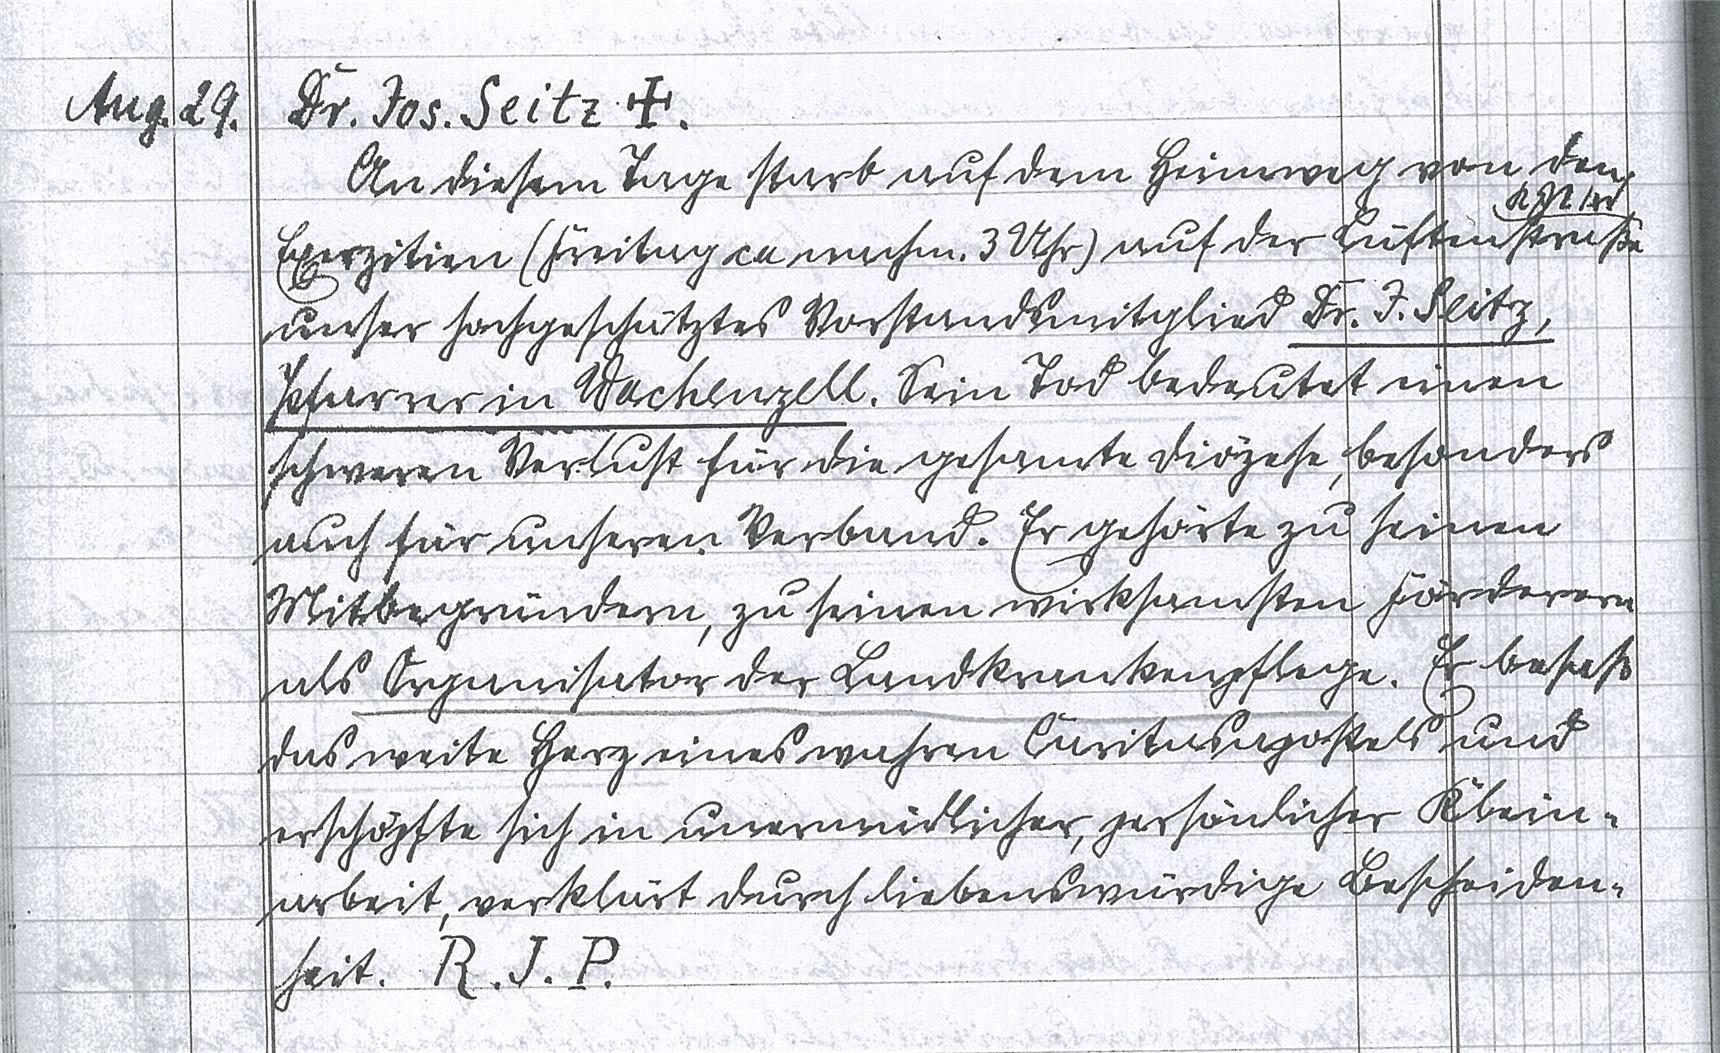 Aug. 29. Dr. Jos. Seitz ✝.
An diesem Tage starb auf dem Heimweg von den
Exerzitien (Freitag ca nachm. 3 Uhr) auf der Luftenstraße
unser hochgeschätztes Vorstandsmitglied Dr. J. Seitz,
Pfarrer in Wachenzell. Sein Tod bedeutet einen
schweren Verlust für die gesamte Diözese, besonders
auch für unseren Verband. Er gehörte zu seinen
Mitbegründern, zu seinen wirksamsten Förderern
als Organisator der Landkrankenpflege. Er besaß
das weite Herz eines wahren Caritasapostels und
erschöpfte sich in unermüdlicher, persönlicher Klein-
arbeit, verklärt durch liebenswürdige Bescheiden-
heit. R. J. P.